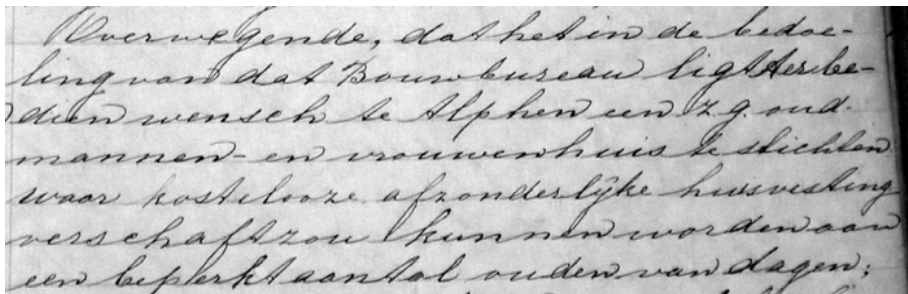 Overwegende, dat het in de bedoe-
ling van dat Bouwbureau ligt ter be-
dien wensch te Alphen een z.g. oud-
mannen- en vrouwenhuis te stichten
waar kostelooze afzonderlijke huisvesting
verschaft zou kunnen worden aan
een beperkt aantal ouden van dagen;